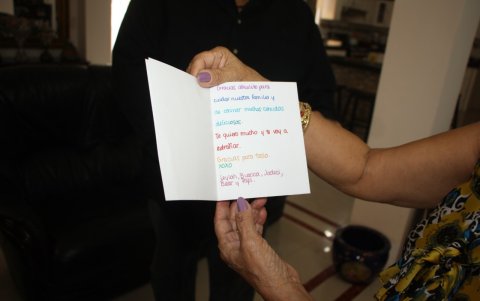 Gracias abuelita para
cuidar nuestra familia y
de cocinar muchas comidas
deliciosas.
Te quiero mucho y te voy a
extrañar.
Gracias para todo
xoxo
Bear y Papi.